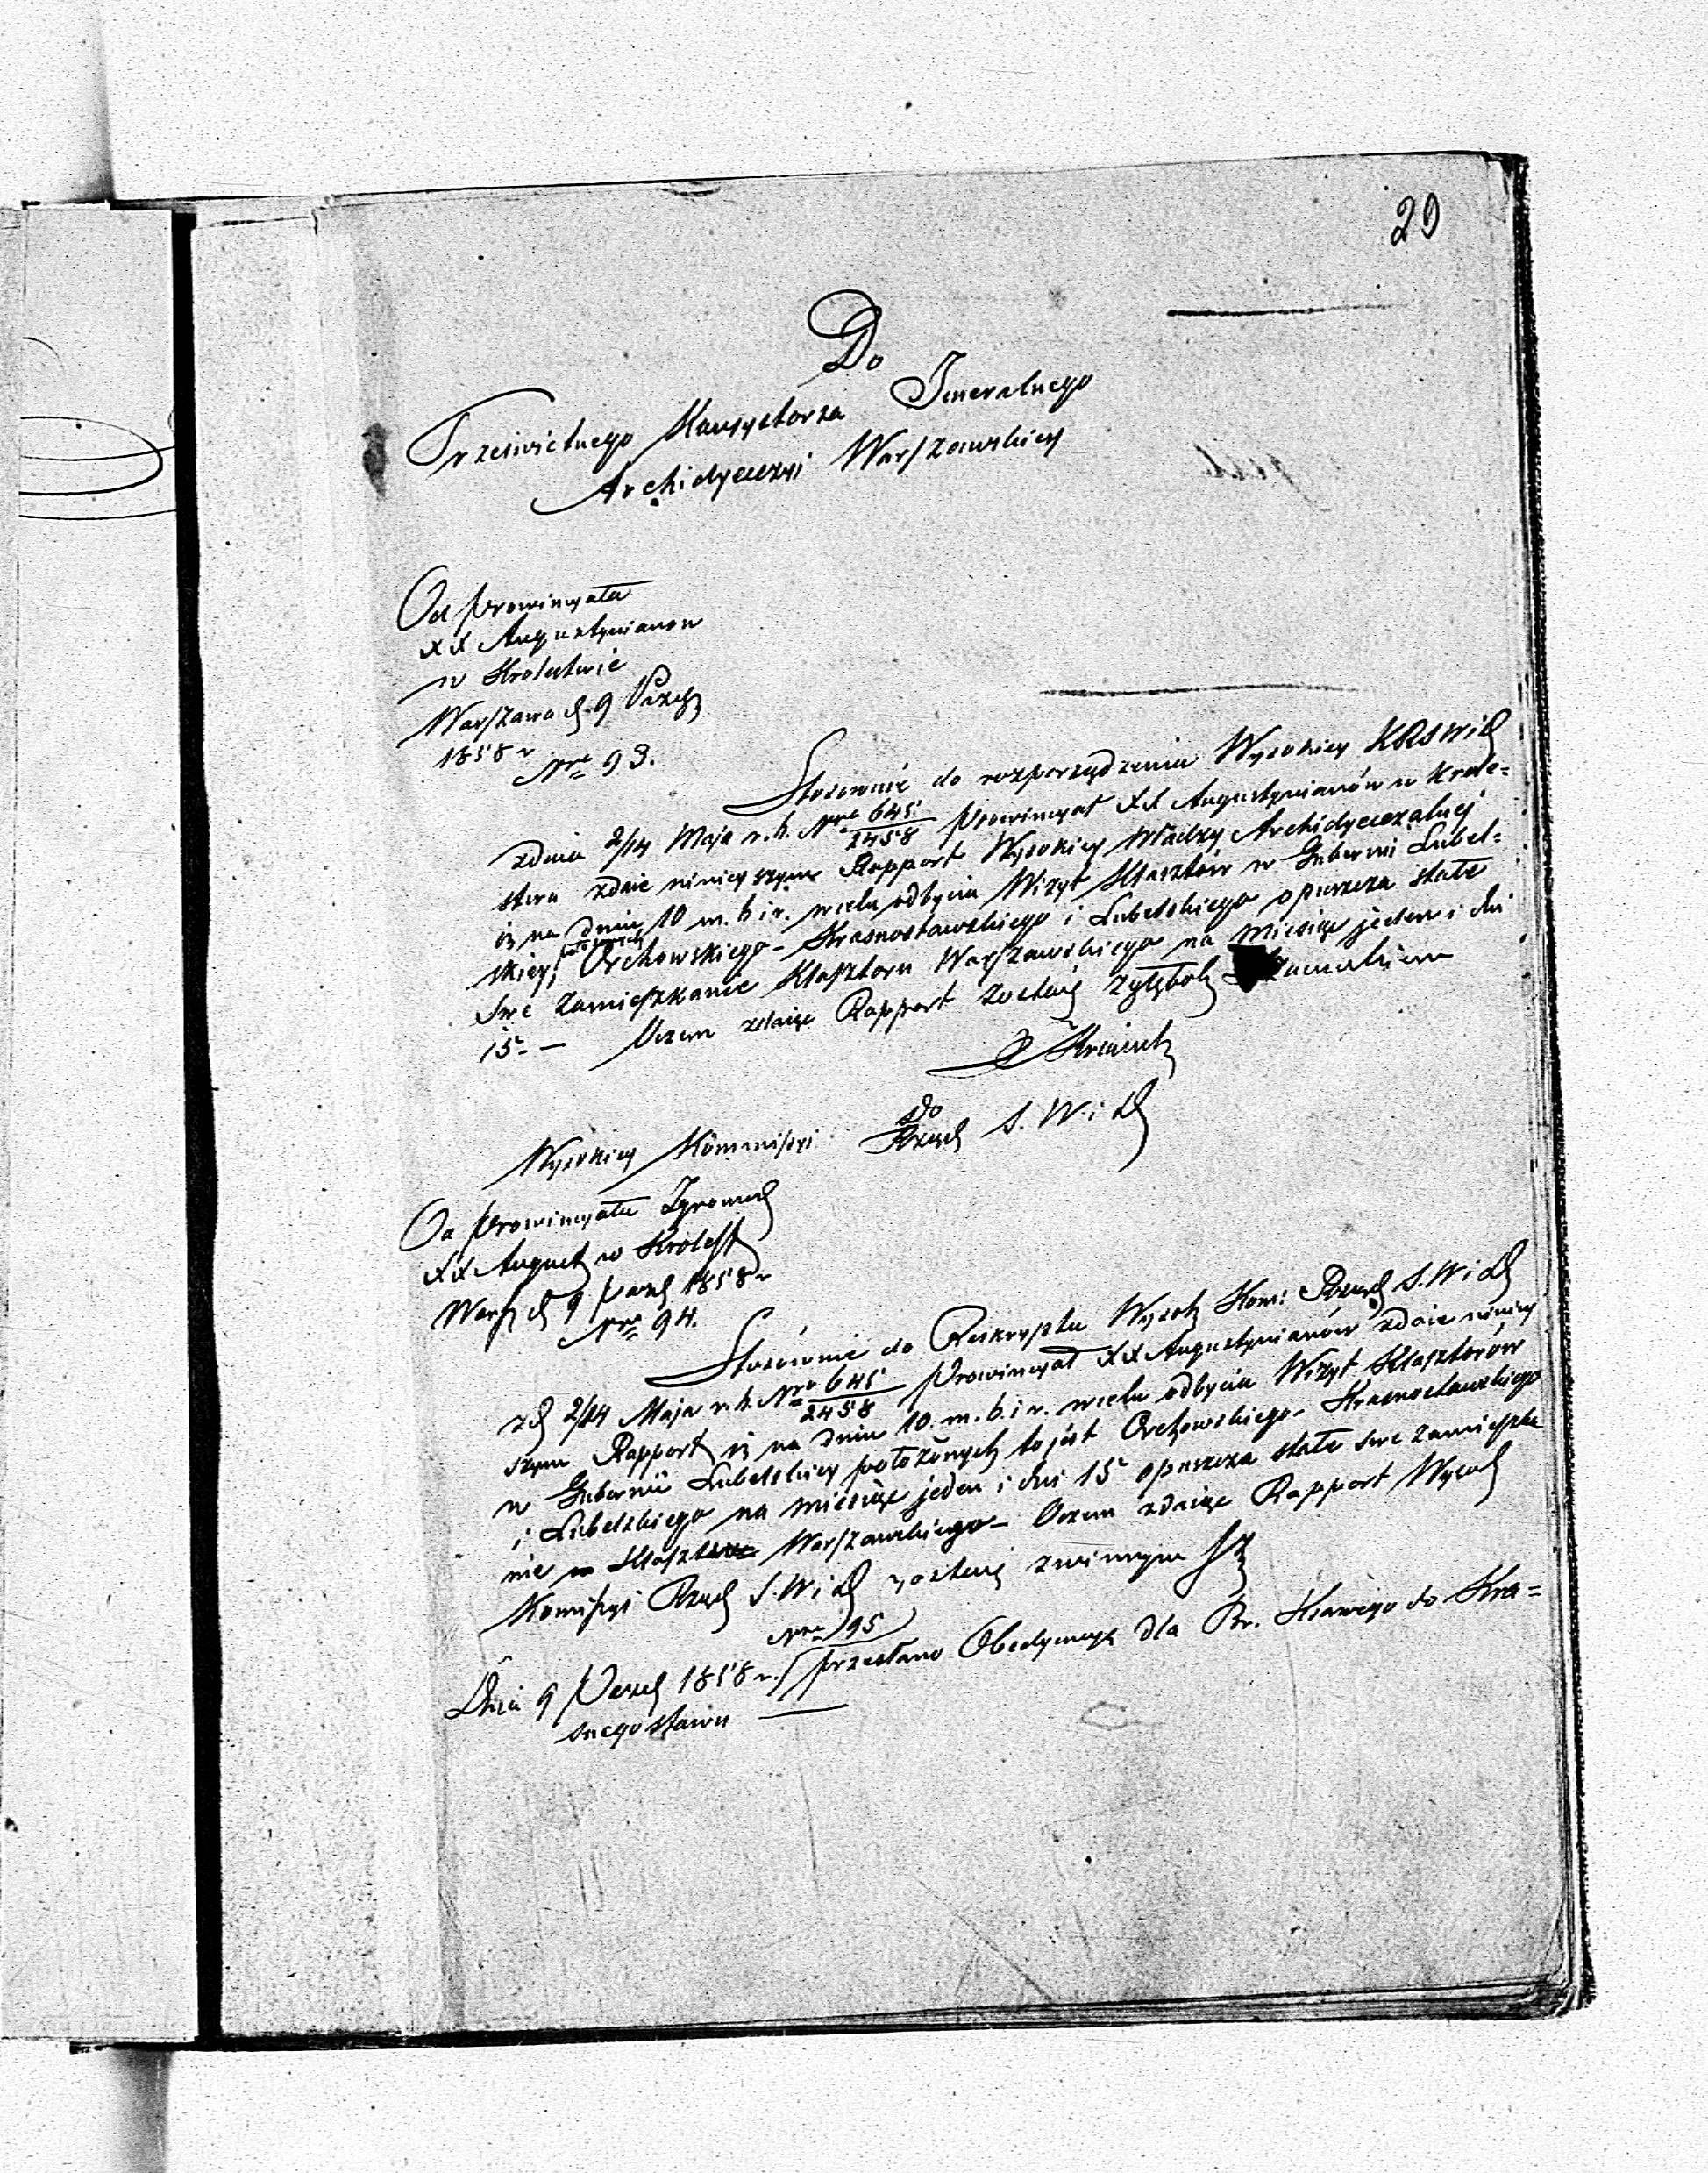 29
Do
Prześwietnego Konsystorza Jeneralnego
Archidyecezyi Warszawskiey
Od Prowincyała
XX Augustynianow
w Krolestwie
Warszawa d. 9 Pazdz
1858 r
Nro 93.
Stosownie do rozporządzenia Wysokiey KRSWiD
z dnia 2/14 Maja r. b. Nro 645/2458 Prowincyał XX Augustynianów w Krole=
stwie zdaie niniejszym Rapport Wysokiey Władzy Archidyecezalnej
iż na dniu 10 m. b i r. w celu odbycia Wizyt Klasztorów w Gubernii Lubel=
skiey, Orchowskiego - Krasnostawskiego i Lubelskiego opuszcza stałe
swe zamieszkanie Klasztoru Warszawskiego na miesiąc jeden i dni
15. — Oczem zdaiąc Rapport zostaię z głębok
Do
Wysokiey Kommissyi Rząd S. W. i D
Od Prowincyała Zgromad
XX August w Krolest
Warsz d 9 Pazd 1858 r
Nro 94.
Stosownie do Reskryptu Wysok Kom: Rząd S. W i D
z d 2/14 Maja r. b. Nro 645/2458 Prowincyał XX Augustynianów zdaie niniey
szym Rapport iż na dniu 10. m. b. i r. w celu odbycia Wizyt Klasztorów
w Gubernii Lubelskiey położonych to jest Orchowskiego - Krasnostawskiego
i Lubelskiego na miesiąc jeden i dni 15 opuszcza stałe swe zamieszka
nie w Klasztorze Warszawskiego - Oczem zdaiąc Rapport Wysok
Komissyi Rząd S. W i D zostaię z winnym
Nro 95
Dnia 9 Pazd 1858 r. przesłano Obedyencyę dla Br. do Kra=
snegostawu —